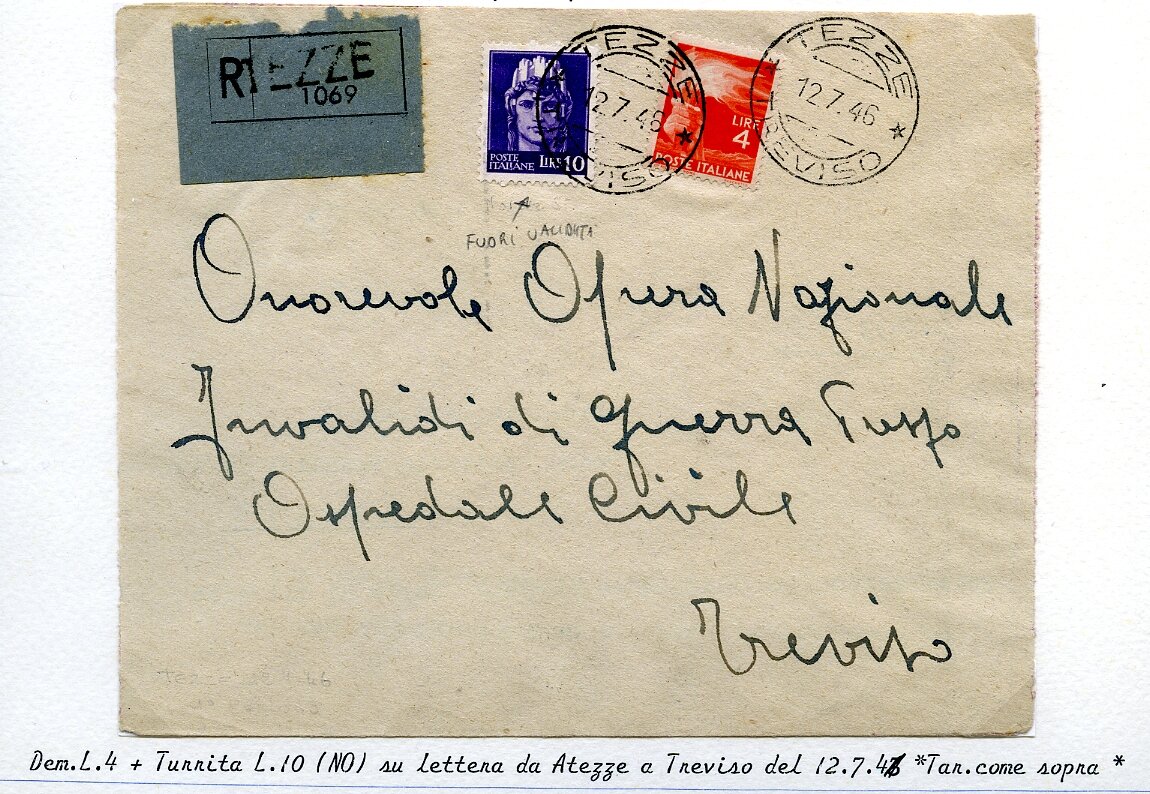 R TEZZE
1069
POSTE ITALIANE LIRE 10
TEZZE
12.7.46
TREVISO
LIRE 4
POSTE ITALIANE
TEZZE
12.7.46
TREVISO
FUORI VALIDITÀ
Onorevole Opera Nazionale
Invalidi di guerra Presso
Ospedale Civile
Treviso
Dem.L.4 + Turrita L.10 (NO) su lettera da Atezze a Treviso del 12.7.46 *Tar.come sopra *